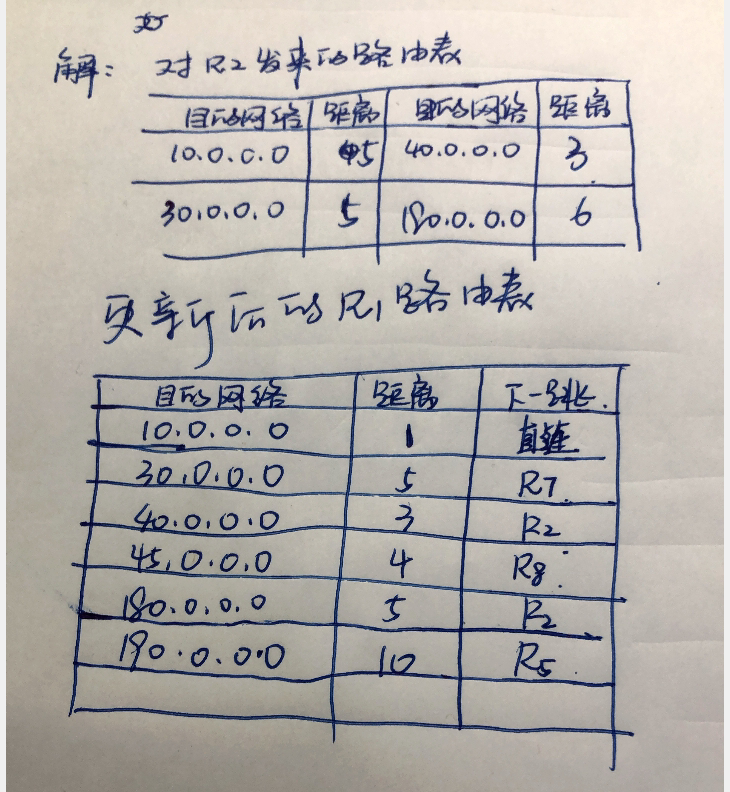 解: 对R2发来的路由表
目的网络 距离 目的网络 距离
10.0.0.0 5 40.0.0.0 3
30.0.0.0 5 180.0.0.0 6
更新后的R1路由表
目的网络 距离 下一跳
10.0.0.0 1 直连
30.0.0.0 5 R7
40.0.0.0 3 R2
45.0.0.0 4 R8
180.0.0.0 5 R2
190.0.0.0 10 R5